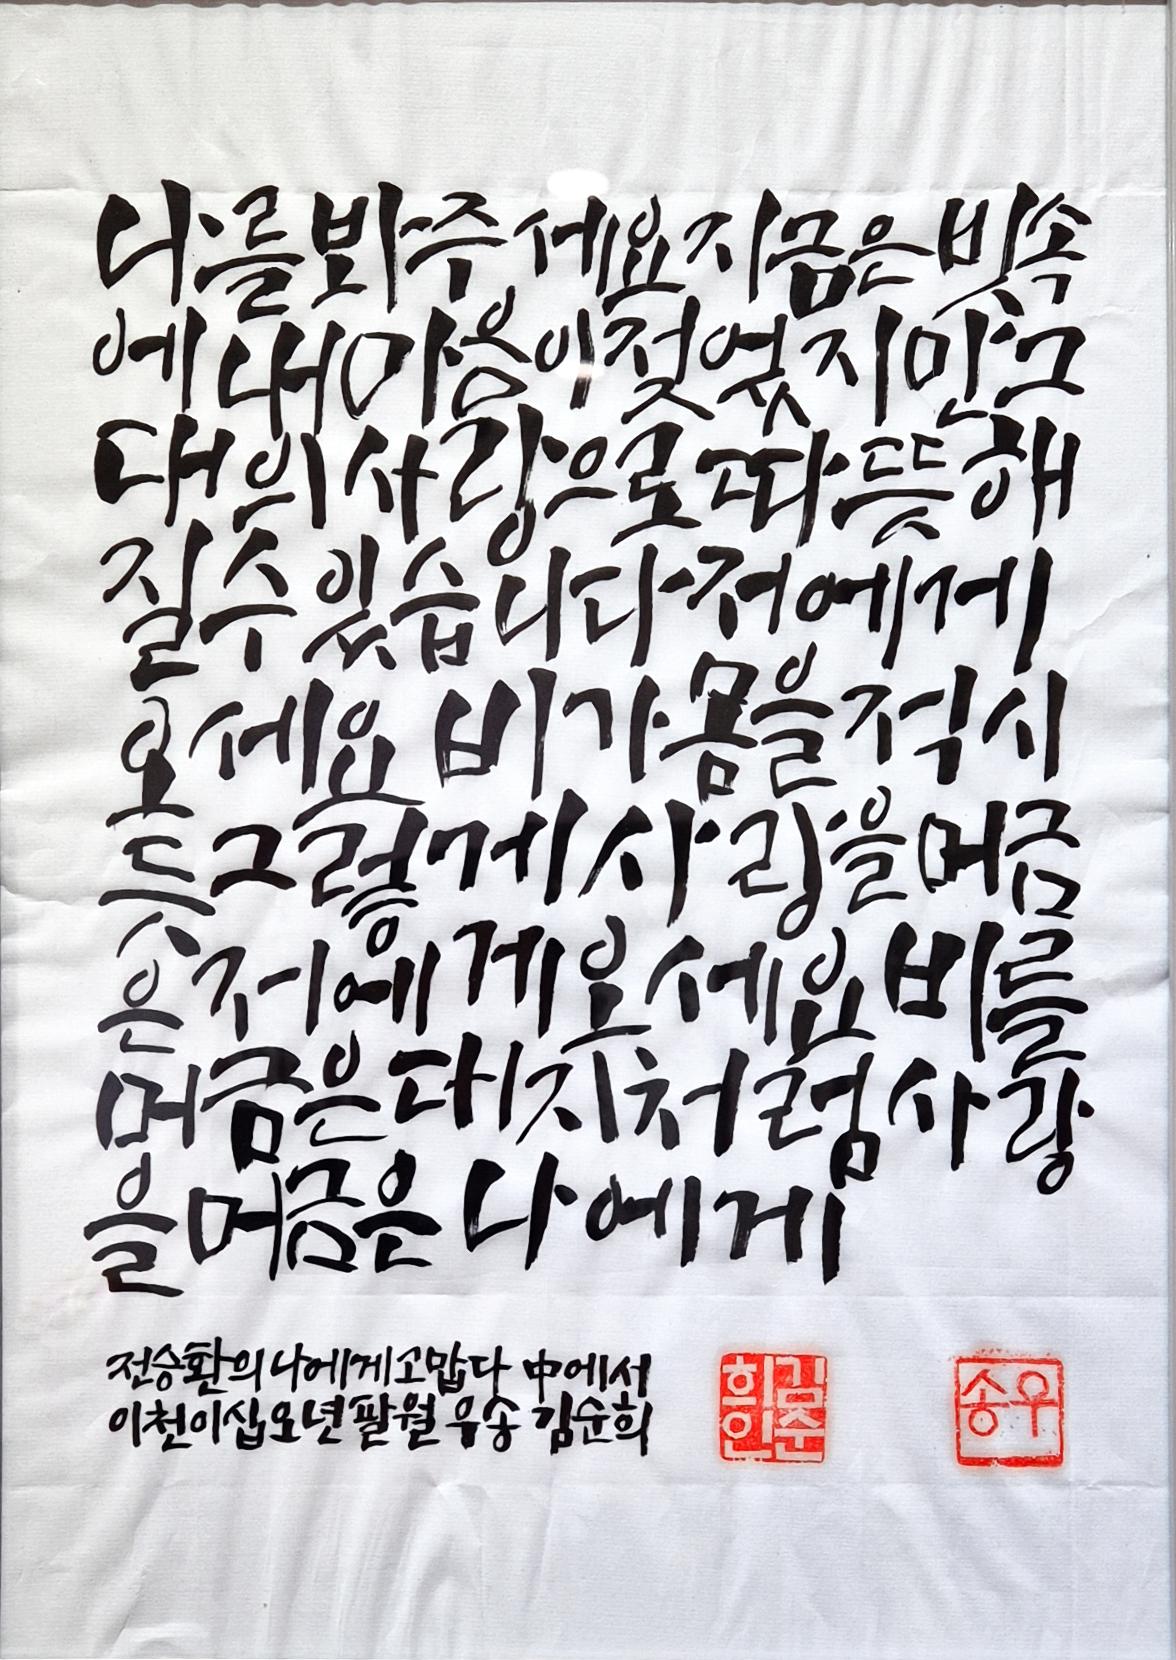 나를봐주세요지금은빗속
에내마음이젖었지만그
대의사랑으로따뜻해
질수있습니다저에게
오세요비가몸을적시
듯그렇게사랑을머금
은저에게오세요비를
머금은대지처럼사랑
을머금은나에게
전승환의나에게고맙다 中에서
이천이십오년팔월 우송 김순희
김순희인
우송